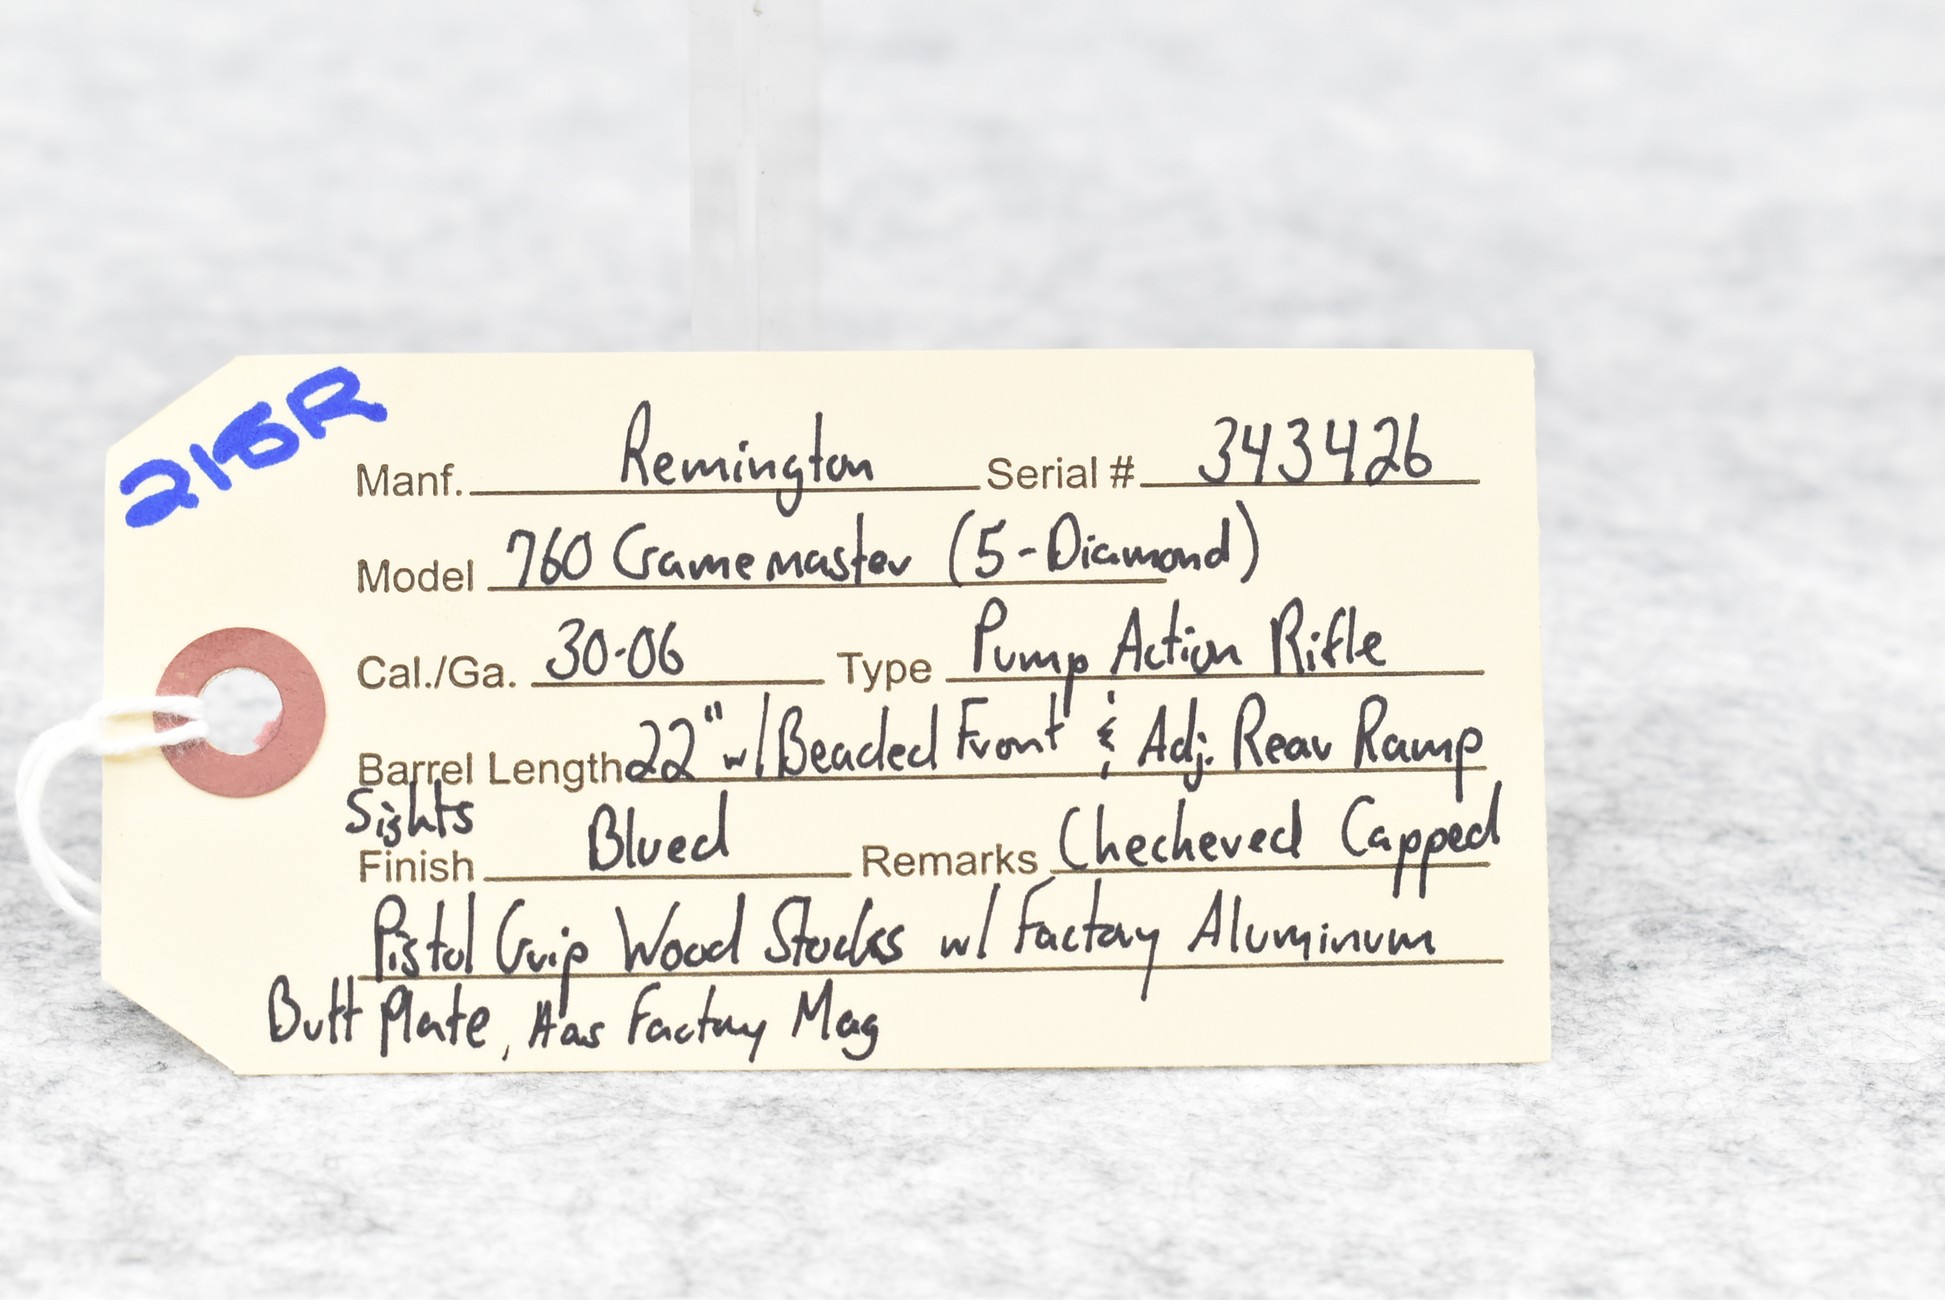 218R
Manf. Remington Serial # 343426
Model 760 Gamemaster (5-Diamond)
Cal./Ga. 30-06 Type Pump Action Rifle
Barrel Length 22" w/ Beaded Front & Adj. Rear Ramp
Sights
Finish Blued Remarks Checkered Capped
Pistol Grip Wood Stocks w/ Factory Aluminum
Butt Plate, Has Factory Mag